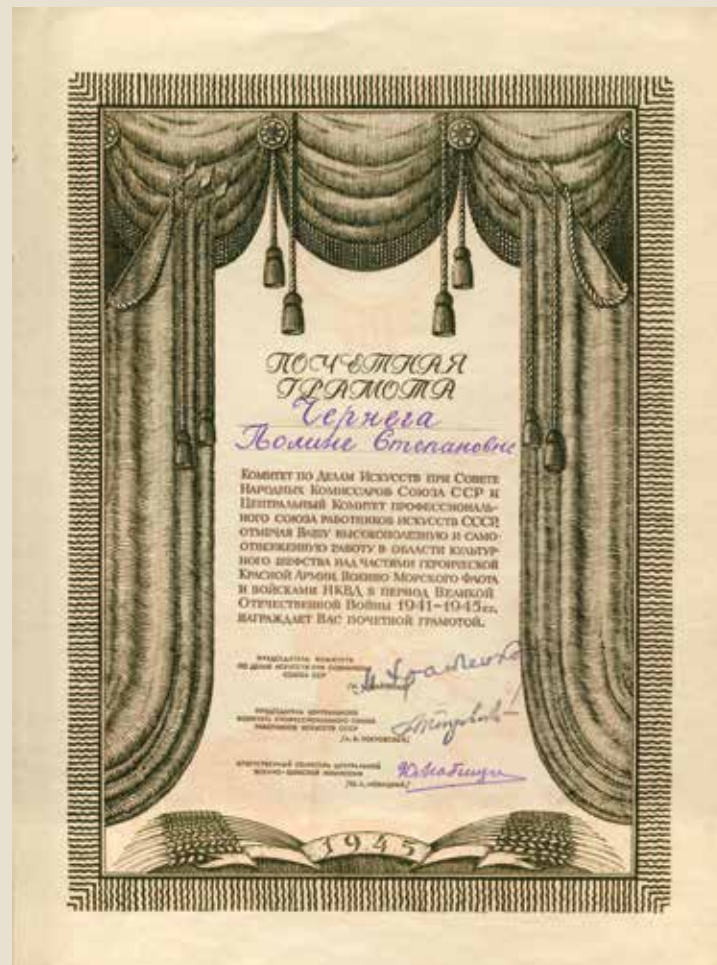 ПОЧЕТНАЯ
ГРАМОТА
Чернега
Полине Степановне
Комитет по Делам Искусств при Совете
Народных Комиссаров Союза ССР и
Центральный Комитет профессиональ-
ного союза работников искусств СССР,
отмечая Вашу высокополезную и само-
отверженную работу в области культур-
ного шефства над частями героической
Красной Армии, Военно Морского Флота
и войсками НКВД в период Великой
Отечественной Войны 1941-1945 гг.,
награждает Вас почетной грамотой.
ПРЕДСЕДАТЕЛЬ КОМИТЕТА
ПО ДЕЛАМ ИСКУССТВ ПРИ СОВНАРКОМЕ
СОЮЗА ССР
ПРЕДСЕДАТЕЛЬ ЦЕНТРАЛЬНОГО
КОМИТЕТА ПРОФЕССИОНАЛЬНОГО СОЮЗА
РАБОТНИКОВ ИСКУССТВ СССР
ОТВЕТСТВЕННЫЙ СЕКРЕТАРЬ ЦЕНТРАЛЬНОЙ
ВОЕННО-ШЕФСКОЙ КОМИССИИ
1945